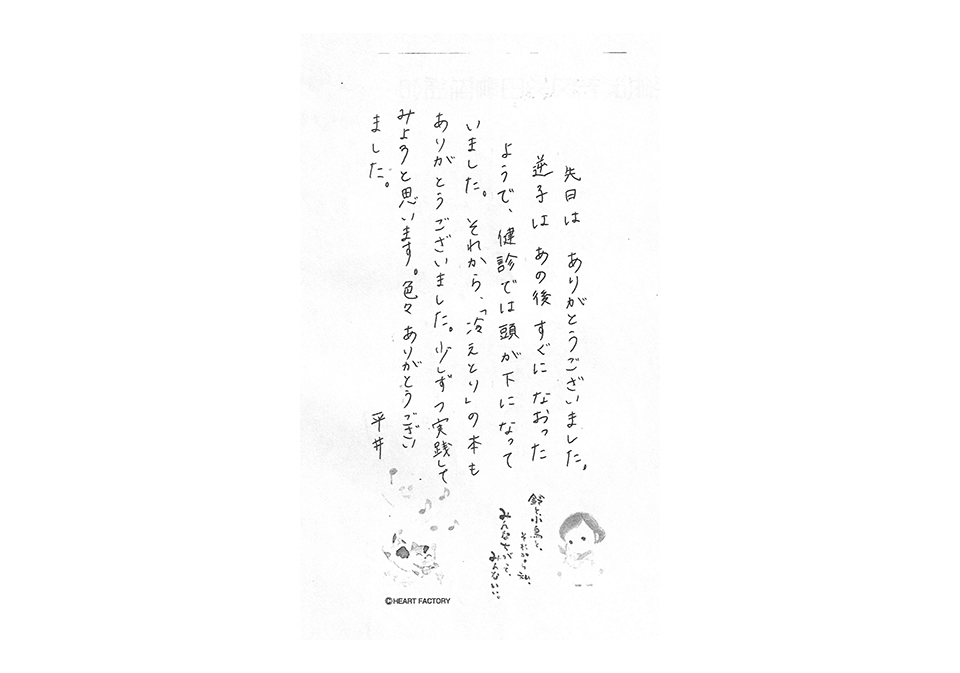 先日は ありがとうございました。
逆子は あの後 すぐに なおった
ようで、健診では頭が下になって
いました。それから、「冷えとり」の本も
ありがとうございました。少しずつ実践して
みようと思います。色々ありがとうござい
ました。
平井
鈴と小鳥と、
それから私、
みんなちがって、
みんないい。
©HEART FACTORY